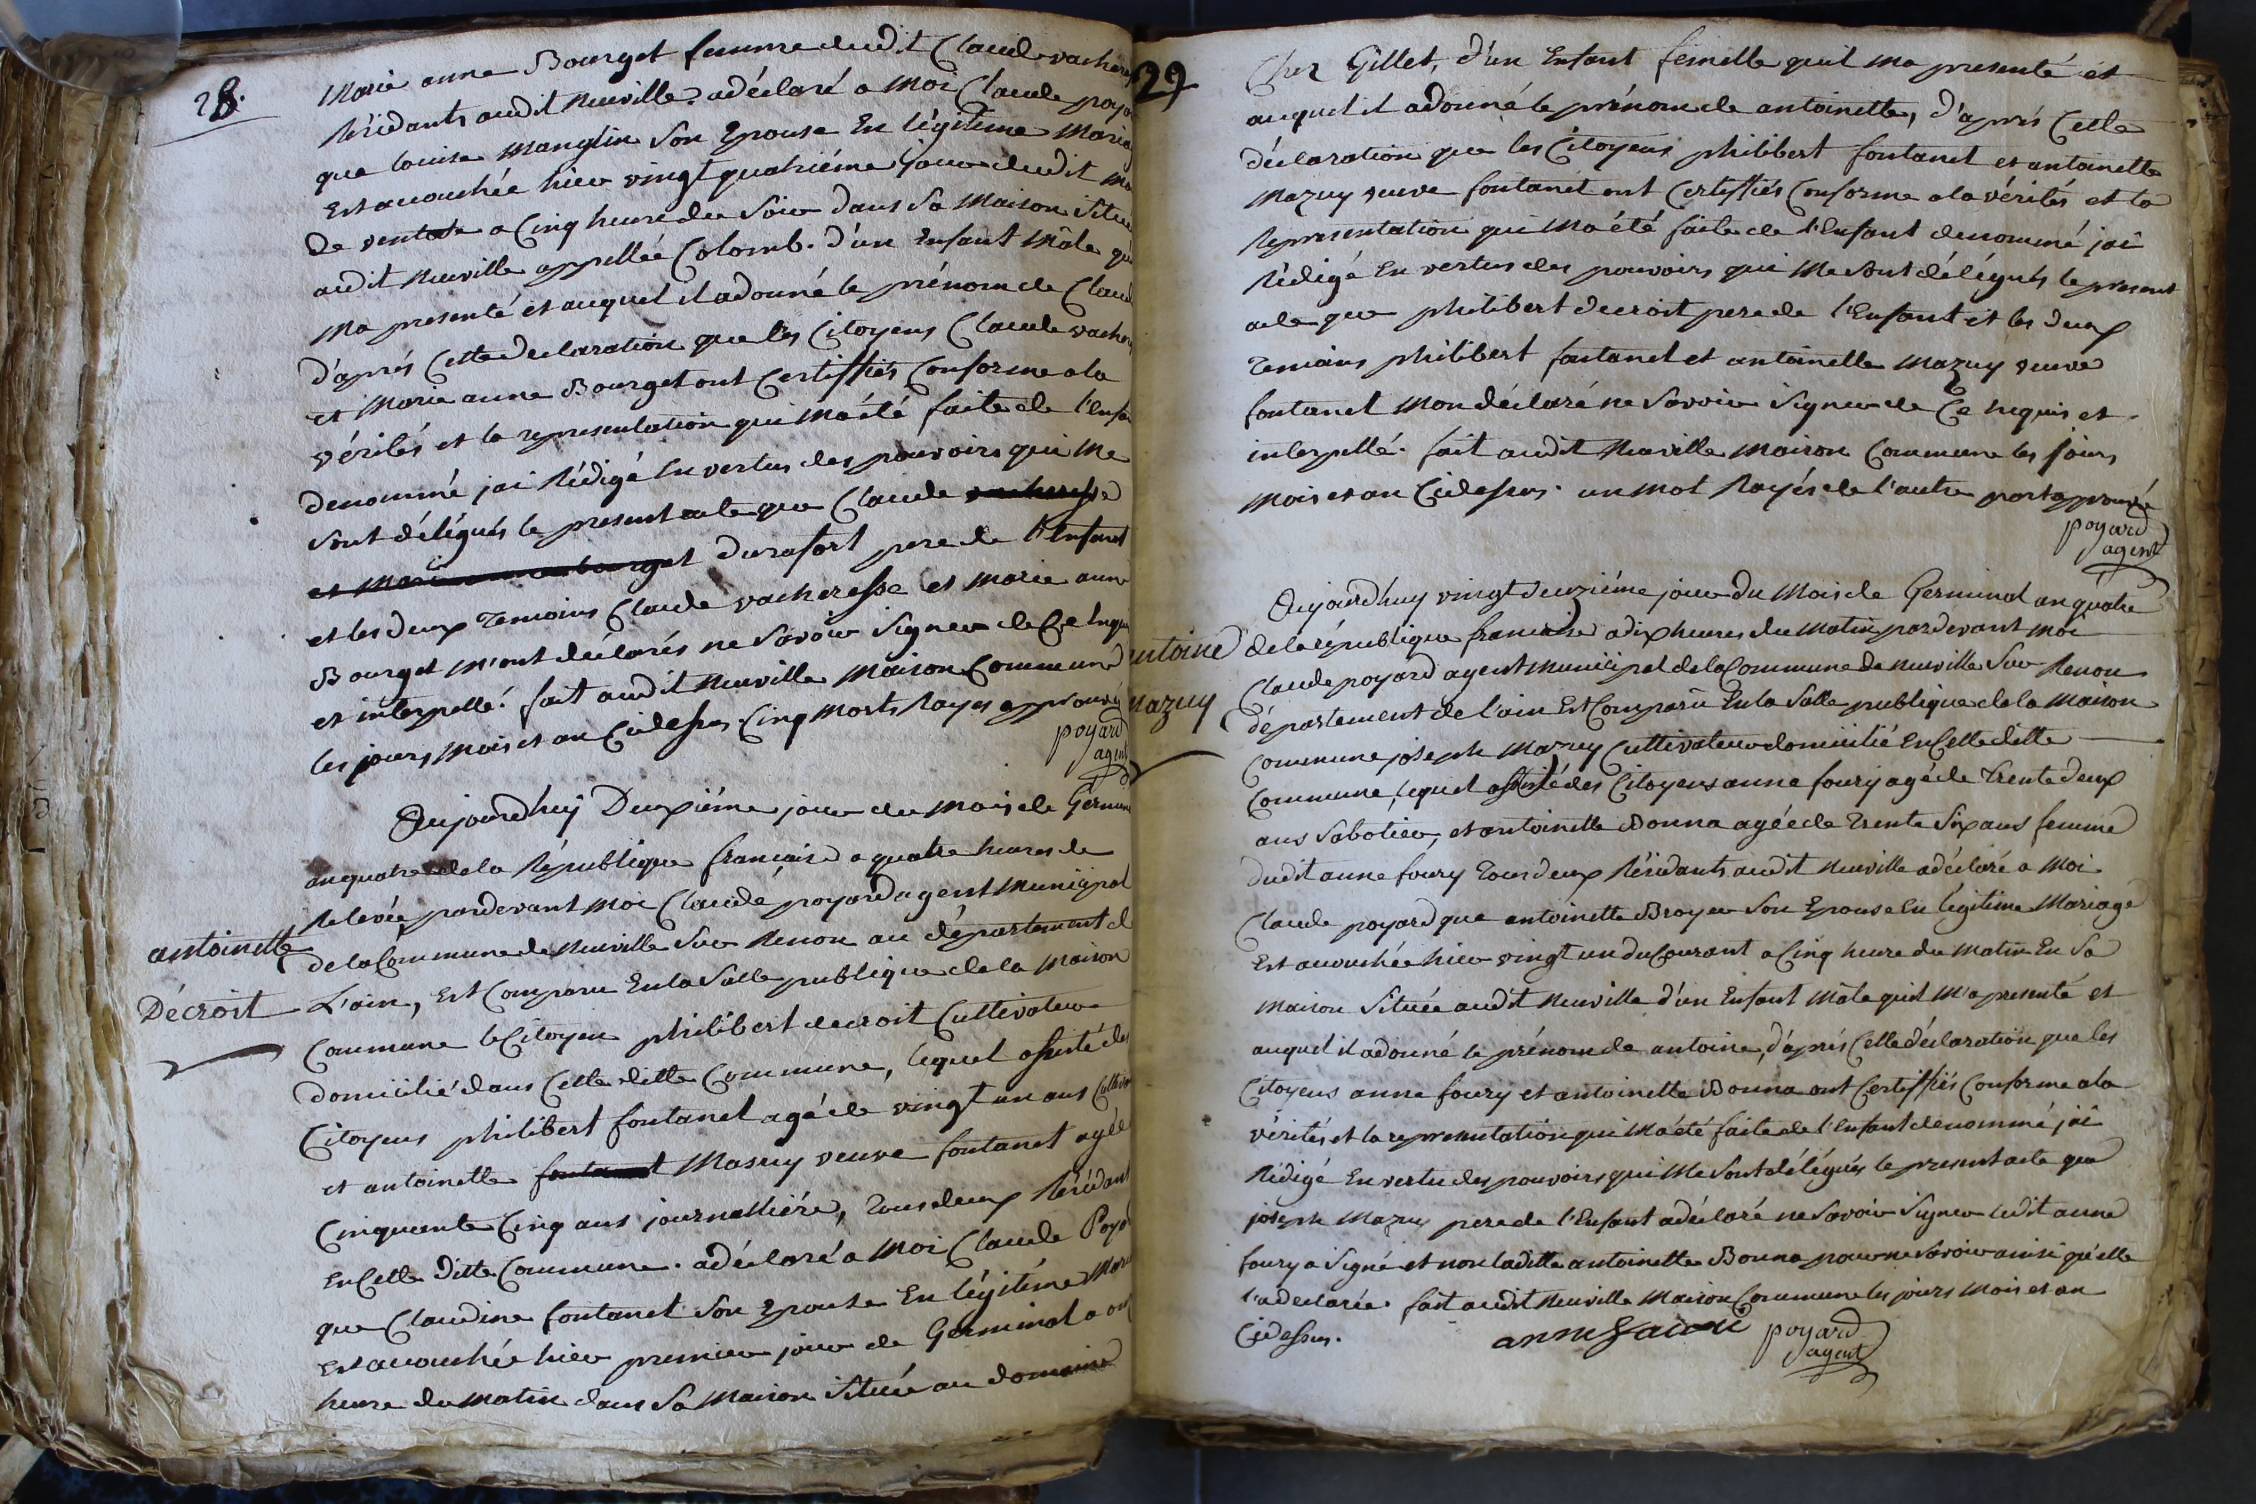 28.
Marie anne Bourget femme dudit Claude vacheres
Résidants audit Neuville. adéclaré a Moi Claude poya
que louise Manglin Son Epouse En légitime Maria
Est acouchée hier vingt quatriéme jour dudit mo
De ventose a Cinq heure du Soir dans Sa Maison Situé
audit Neuville appellée Colomb. d'un Enfant Mâle qu'i
Ma presenté et auquel il adonné le prénom de Claud
d'aprés Cette declaration que les Citoyens Claude vacher
et Marie anne Bourget ont Certiffiés Conforme ala
vérités et la representation qui Ma été faite de l'enfa
denommé jai Rédigé En vertus des pouvoirs qui Me
Sont délégués le present acte que Claude vacheresse
et Marie anne bourget Durafort pere de l'Enfant
et les deux Temoins Claude vacheresse et Marie anne
Bourget M'ont déclarés ne Savoir Signer de Ce Requ
et interpellé. fait audit Neuville Maison Commune
les jours, Mois et an Cidessus Cinq Mots Rayes approuvé
poyard
agent
antoinette
Décroit
Aujourdhuy Deuxiéme jour du Mois de Germin
an quatre de la République francaise a quatre heures de
Relevée pardevant Moi Claude poyard agent Municipal
de la Commune de Neuville Sur Renon au département d
L'ain, Est Comparu En la Salle publique de la Maison
Commune le Citoyen philibert decroit Cultivateur
domicilié dans Cette ditte Commune, lequel assisté des
Citoyens philibert fontanel agé de vingt un ans Cultiv
et antoinette fontanel Masuy veuve fontanet agée
Cinquante Cinq ans journalliére, Tous deux Résidant
En Cette Ditte Commune. adéclaré a Moi Claude Poya
que Claudine fontanet Son Epouse En légitime Mari
Est acouchée hier premier jour de Germinal a on
heure du Matin dans Sa Maison Située au domaine
29
Chez Gillet, d'un Enfant femelle quil ma presenté et
auquel il adonné le prénom de antoinette, d'aprés Cette
déclaration que les Citoyens philibert fontanel et antoinette
Mazuy veuve fontanet ont Certiffiés Conforme ala vérités et la
Representation qui Ma été faite de l'Enfant denommé jai
Rédigé En vertus des pouvoirs qui Me Sont délégués le present
acte que philibert decroit pere de l'Enfant et les deux
Temoins philibert fontanel et antoinette Mazuy veuve
fontanet Mon déclaré ne Savoir Signer de Ce requis et
interpellé. fait audit Neuville Maison Commune les jours
Mois et an Cidessus. un Mot Rayés de l'autre part approuvé
poyard
agent
antoine
Mazuy
Aujourdhuy vingt deuxiéme jour du Mois de Germinal an quatre
de la république francaise a dix heures du Matin pardevant Moi
Claude poyard agent Municipal de la Commune de Neuville Sur Renon
département de l'ain Est Comparû En la Salle publique de la Maison
Commune joseph Mazuy Cultivateur domicilié En Cette ditte
Commune, lequel assisté des Citoyens anne foury agé de Trente deux
ans Sabotier, et antoinette Bonna agée de Trente Six ans femme
dudit anne foury Tous deux Résidants audit Neuville adéclaré a Moi
Claude poyard que antoinette Broyer Son Epouse En légitime Mariage
Est acouchée hier vingt un du Courant a Cinq heure du Matin En Sa
Maison Située audit Neuville d'un Enfant Mâle quil M'a presenté et
auquel il adonné le prénom de antoine, d'aprés Cette déclaration que les
Citoyens anne foury et antoinette Bonna ont Certiffiés Conforme ala
vérités et la representation qui Ma été faite de l'Enfant denommé jai
Rédigé En vertu des pouvoirs qui Me Sont délégués le present acte que
joseph Mazuy pere de l'Enfant adéclaré ne Savoir Signer ledit anne
foury a Signé et non laditte antoinette Bonna pour ne Savoir ainsi qu'elle
l'adeclarée. fait audit Neuville Maison Commune les jours Mois et an
Cidessus.
poyard
agent